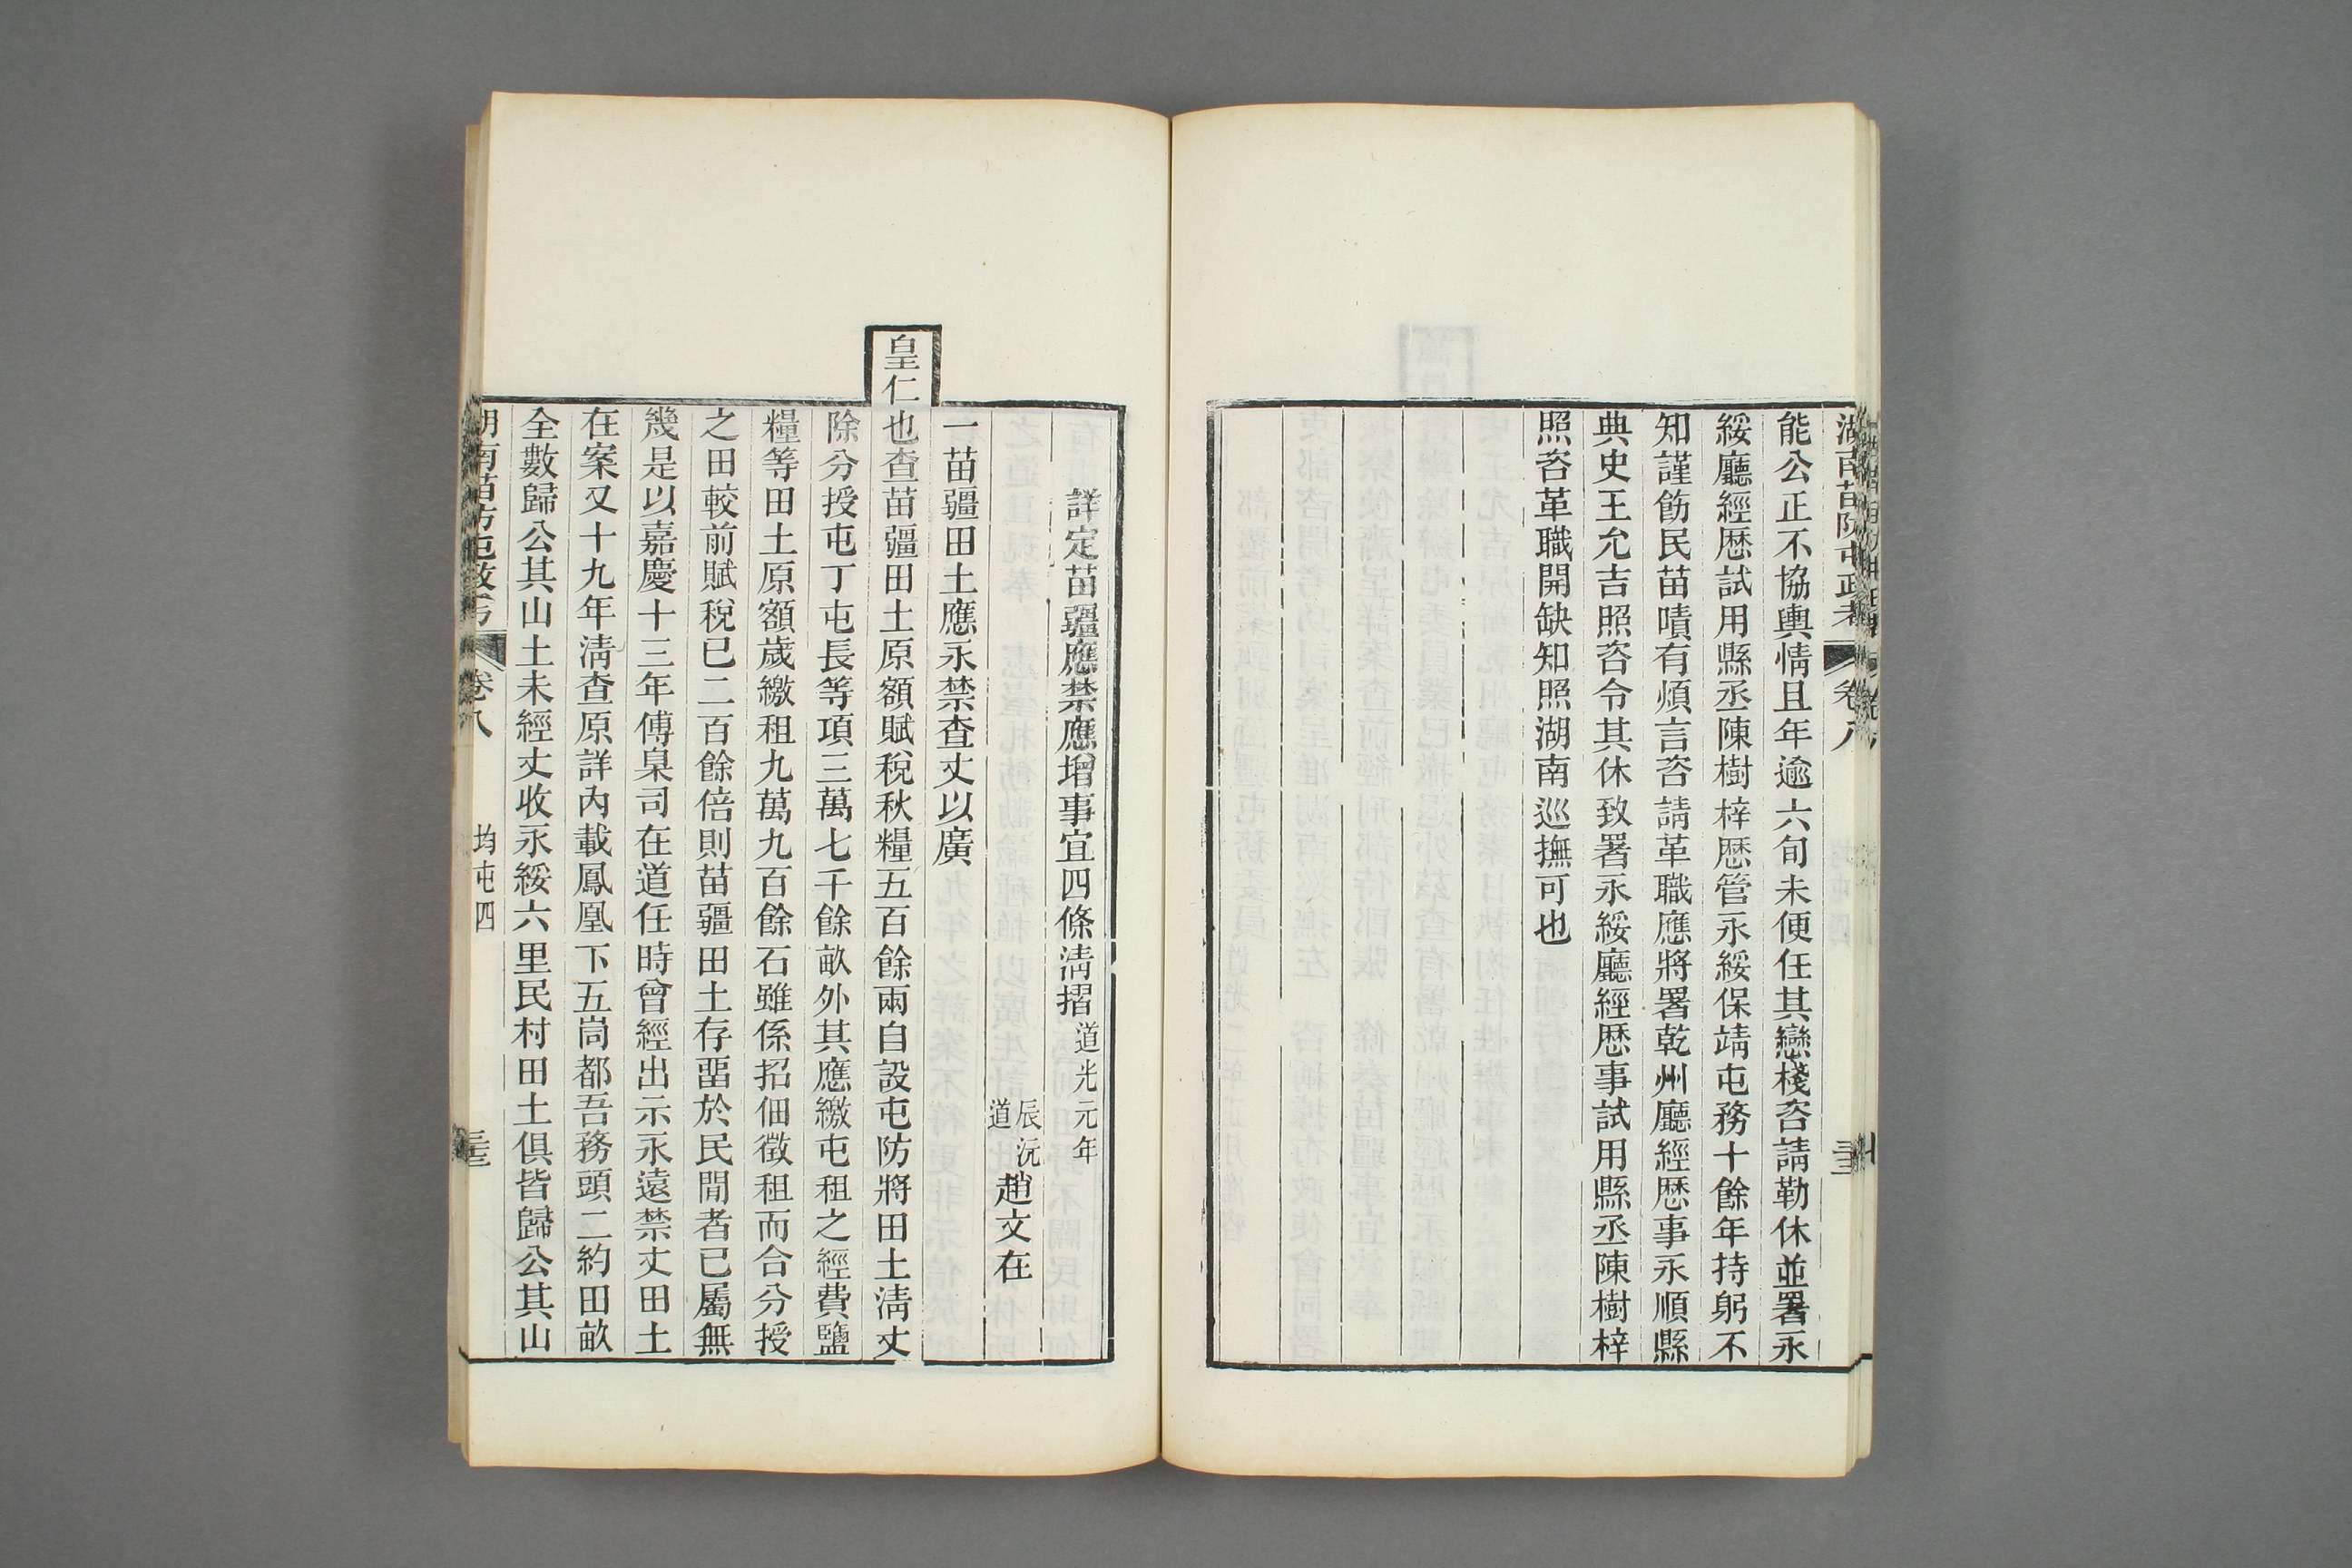 湖南苗防屯政考 卷八
能公正不協輿情且年逾六旬未便任其戀棧咨請勒休並署永
綏廳經歷試用縣丞陳樹梓歷管永綏保靖屯務十餘年持躬不
知謹飭民苗嘖有煩言咨請革職應將署乾州廳經歷事永順縣
典史王允吉照咨令其休致署永綏廳經歷事試用縣丞陳樹梓
照咨革職開缺知照湖南巡撫可也
詳定苗疆應禁應增事宜四條清摺道光元年
辰沅道趙文在
一苗疆田土應永禁查丈以廣
皇仁也查苗疆田土原額賦稅秋糧五百餘兩自設屯防將田土清丈
除分授屯丁屯長等項三萬七千餘畝外其應繳屯租之經費鹽
糧等田土原額歲繳租九萬九百餘石雖係招佃徵租而合分授
之田較前賦稅已二百餘倍則苗疆田土存畱於民間者已屬無
幾是以嘉慶十三年傅臬司在道任時曾經出示永遠禁丈田土
在案又十九年清查原詳內載鳳凰下五峝都吾務頭二約田畝
全數歸公其山土未經丈收永綏六里民村田土俱皆歸公其山
湖南苗防屯政考 卷八 均屯四